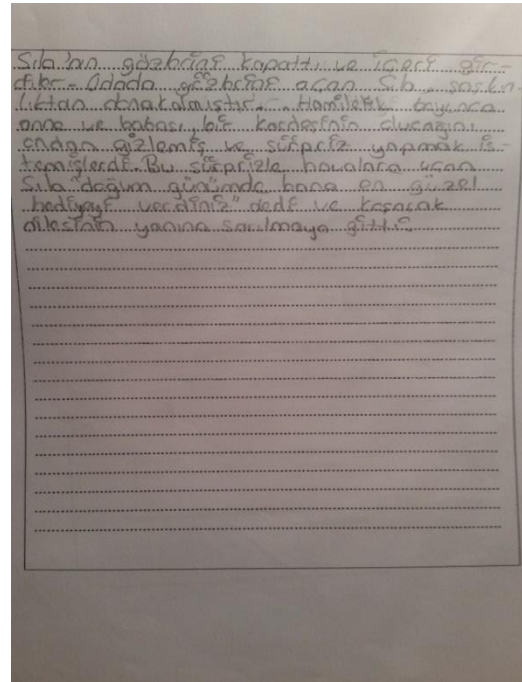 Sıla'nın gözlerini kapattı ve içeri gir-
diler. Odada gözlerini açan Sıla, şaşkın-
lıktan donakalmıştır. Hamilelik boyunca
anne ve babası, bir kardeşinin olucağını
ondan gizlemiş ve sürpriz yapmak is-
temişlerdi. Bu sürprizle havalara uçan
Sıla "doğum günümde bana en güzel
hediyeyi verdiniz" dedi ve koşarak
ailesinin yanına sarılmaya gitti.